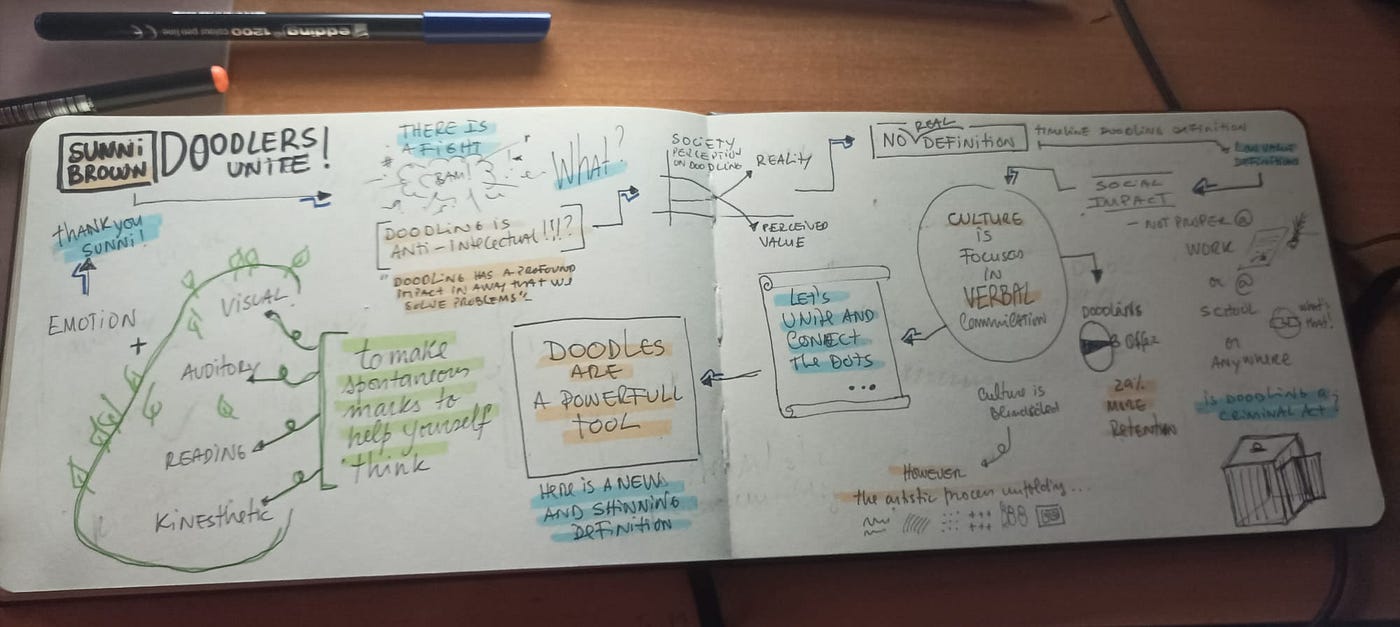 edding 1200 colour pen fine CE
SUNNi
BROWN
DOODLERS!
UNITE
THERE IS
A FIGHT
BAM!
What?
DOODLING IS
ANTI-INTELECTUAL!!!?
"DOODLING HAS A PROFOUND
IMPACT IN A WAY THAT WE
SOLVE PROBLEMS"
SOCIETY
PERCEPTION
ON DOODLING
REALITY
PERCEIVED
VALUE
REAL
NO DEFINITION
TIMELINE DOODLING DEFINITION
LOW VALUE
DEFINITIONS
SOCIAL
IMPACT
- NOT PROPER @
WORK
or @
SCHOOL
or
ANYWHERE
what's
that!
is DOODLING A
CRIMINAL ACT?
CULTURE
iS
FOCUSED
IN
VERBAL
Communication
DOODLERS
29%
MORE
RETENTION
Culture is
However
the artistic process unfolding...
LET'S
UNITE AND
CONNECT
THE DOTS
...
DOODLES
ARE
A POWERFULL
TOOL
HERE IS A NEW
AND SHINNING
DEFINITION
to make
spontaneous
marks to
help yourself
think
VISUAL
AUDITORY
READING
KiNESthetic
EMOTION
+
thANK you
SUNNi!